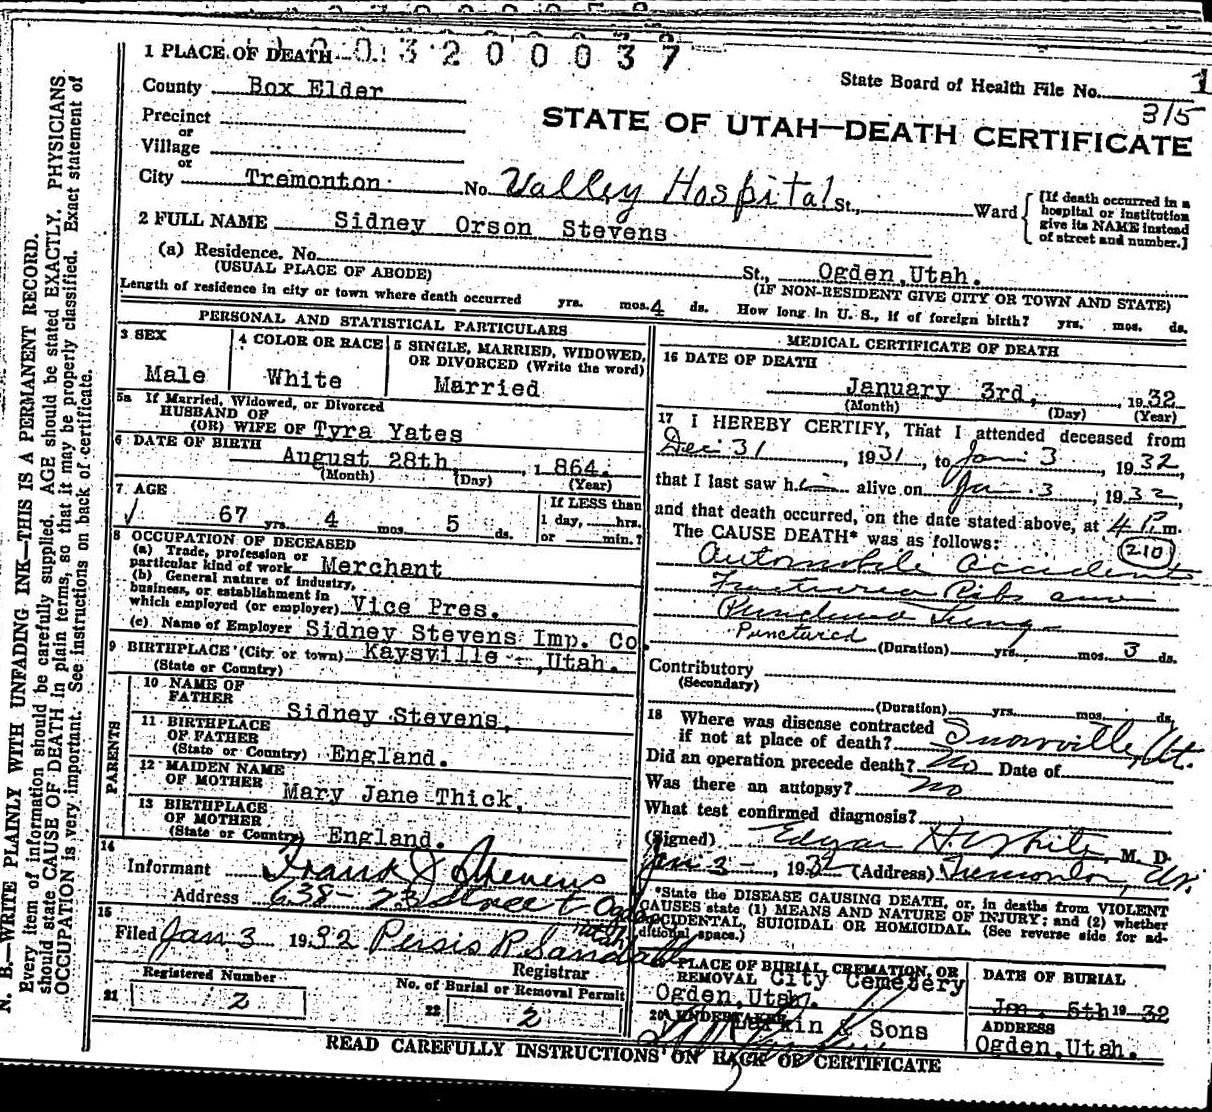 0032000037
1 PLACE OF DEATH
State Board of Health File No. 1
315
County Box Elder
STATE OF UTAH—DEATH CERTIFICATE
Precinct
or
Village
or
City Tremonton No. Valley Hospital St., Ward
[If death occurred in a hospital or institution give its NAME instead of street and number.]
2 FULL NAME Sidney Orson Stevens
(a) Residence. No. St., Ogden, Utah.
(USUAL PLACE OF ABODE) (IF NON-RESIDENT GIVE CITY OR TOWN AND STATE)
Length of residence in city or town where death occurred yrs. mos. 4 ds. How long in U. S., if of foreign birth? yrs. mos. ds.
PERSONAL AND STATISTICAL PARTICULARS
3 SEX
Male
4 COLOR OR RACE
White
5 SINGLE, MARRIED, WIDOWED,
OR DIVORCED (Write the word)
Married
5a If Married, Widowed, or Divorced
HUSBAND OF
(OR) WIFE OF Tyra Yates
6 DATE OF BIRTH
August 28th, 1864.
(Month) (Day) (Year)
7 AGE
67 yrs. 4 mos. 5 ds.
If LESS than
1 day, hrs.
or min.?
8 OCCUPATION OF DECEASED
(a) Trade, profession or
particular kind of work Merchant
(b) General nature of industry,
business, or establishment in
which employed (or employer) Vice Pres.
(c) Name of Employer Sidney Stevens Imp. Co.
9 BIRTHPLACE (City or town) Kaysville, Utah.
(State or Country)
PARENTS
10 NAME OF
FATHER Sidney Stevens,
11 BIRTHPLACE
OF FATHER
(State or Country) England.
12 MAIDEN NAME
OF MOTHER Mary Jane Thick,
13 BIRTHPLACE
OF MOTHER
(State or Country) England.
14
Informant Frank J Stevens
Address 638-23 Street Ogden
Utah
15
Filed Jan 3 1932 Persis R. Sandall
Registrar
Registered Number
21 2
No. of Burial or Removal Permit
22 2
MEDICAL CERTIFICATE OF DEATH
16 DATE OF DEATH
January 3rd, 1932
(Month) (Day) (Year)
17 I HEREBY CERTIFY, That I attended deceased from
Dec 31, 1931, to Jan 3, 1932,
that I last saw him alive on Jan. 3, 1932,
and that death occurred, on the date stated above, at 4 P.m.
The CAUSE DEATH* was as follows:
210
Automobile accident
Fractured Ribs and
Punctured Lungs
Punctured
(Duration) yrs. mos. 3 ds.
Contributory
(Secondary)
(Duration) yrs. mos. ds.
18 Where was disease contracted
if not at place of death? Snowville, Ut.
Did an operation precede death? No Date of
Was there an autopsy? no
What test confirmed diagnosis?
(Signed) Edgar H. White, M. D.
Jan 3-, 1932 (Address) Tremonton, Ut.
*State the DISEASE CAUSING DEATH, or, in deaths from VIOLENT
CAUSES state (1) MEANS AND NATURE OF INJURY; and (2) whether
ACCIDENTAL, SUICIDAL OR HOMICIDAL. (See reverse side for ad-
ditional space.)
19 PLACE OF BURIAL, CREMATION, OR
REMOVAL City Cemetery
Ogden, Utah.
DATE OF BURIAL
Jan. 5th 1932
20 UNDERTAKER
Larkin & Sons
ADDRESS
Ogden, Utah.
READ CAREFULLY INSTRUCTIONS ON BACK OF CERTIFICATE
N. B.—WRITE PLAINLY WITH UNFADING INK—THIS IS A PERMANENT RECORD.
Every item of information should be carefully supplied. AGE should be stated EXACTLY. PHYSICIANS
should state CAUSE OF DEATH in plain terms, so that it may be properly classified. Exact statement of
OCCUPATION is very important. See instructions on back of certificate.